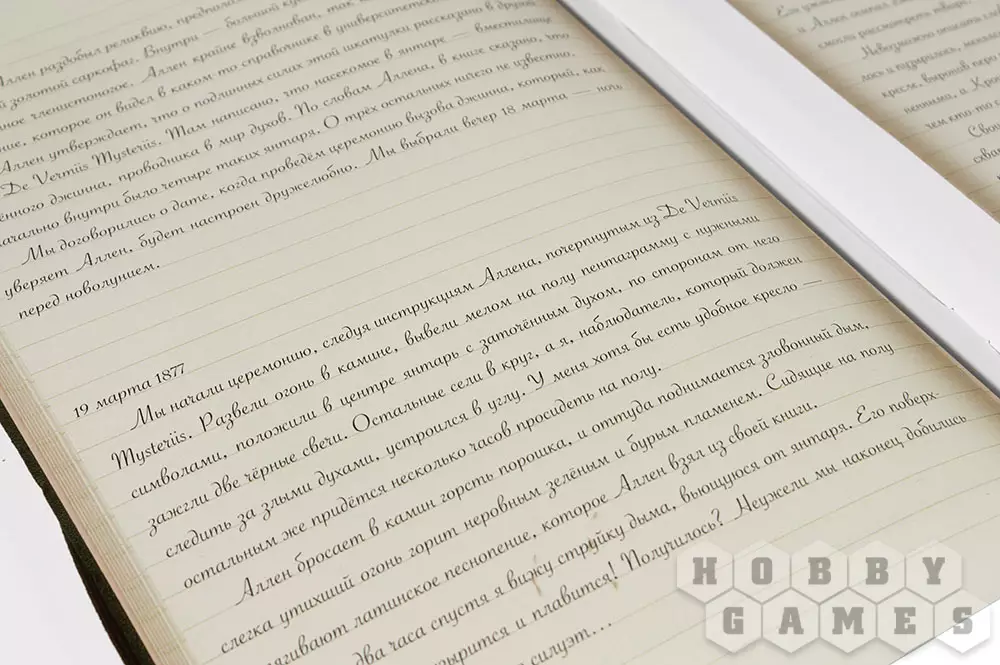 Аллен раздобыл реликвию, предполо
й золотой саркофаг. Внутри — большой ку
ное членистоногое. Аллен крайне взволнован, так
ние, которое он видел в каком-то справочнике в университетской
Аллен утверждает, что о подлинных силах этой шкатулки рассказано в другой
De Vermiis Mysteriis. Там написано, что насекомое в янтаре — вместилище
ённого джинна, проводника в мир духов. По словам Аллена, в книге сказано, что
начально внутри было четыре таких янтаря. О трёх остальных ничего не известно.
Мы договорились о дате, когда проведём церемонию вызова джинна, который, как
уверяет Аллен, будет настроен дружелюбно. Мы выбрали вечер 18 марта — ночь
перед новолунием.
19 марта 1877
Мы начали церемонию, следуя инструкциям Аллена, почерпнутым из De Vermiis
Mysteriis. Развели огонь в камине, вывели мелом на полу пентаграмму с нужными
символами, положили в центре янтарь с заточённым духом, по сторонам от него
зажгли две чёрные свечи. Остальные сели в круг, а я, наблюдатель, который должен
следить за злыми духами, устроился в углу. У меня хотя бы есть удобное кресло —
остальным же придётся несколько часов просидеть на полу.
Аллен бросает в камин горсть порошка, и оттуда поднимается зловонный дым,
слегка утихший огонь горит неровным зелёным и бурым пламенем. Сидящие на полу
тягивают латинское песнопение, которое Аллен взял из своей книги.
два часа спустя я вижу струйку дыма, вьющуюся от янтаря. Его поверх-
зырится и плавится! Получилось? Неужели мы наконец добились
силуэт...
Его
и Аллен
смогли рассмотреть твар
Невозможно описать
лось и пузырилось,
кресле, выронив пер
венными, и Кро
чем кто-то
Сво
схва
HOBBY
GAMES